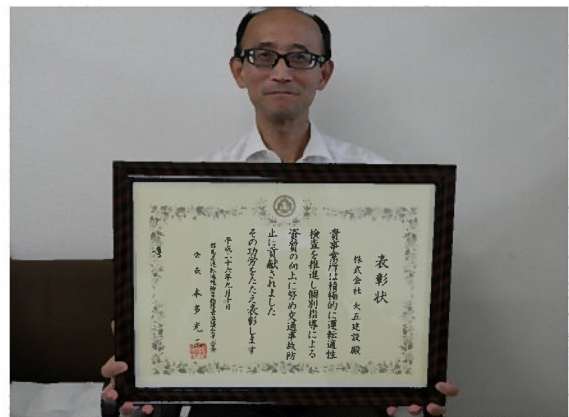 表彰状
株式会社 大五建設 殿
貴事業所は積極的に運転適性
検査を推進し個別指導による
資質の向上に努め交通事故防
止に貢献されました
その功労をたたえ表彰します
平成二十六年九月十日
会長 本多光